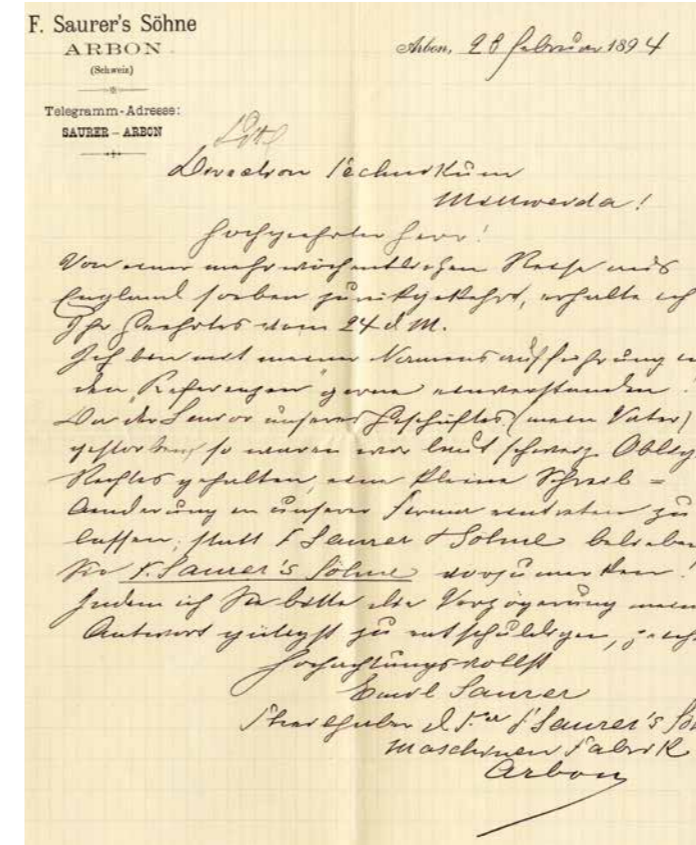 F. Saurer's Söhne
ARBON
(Schweiz)
Telegramm-Adresse:
SAURER – ARBON
Arbon, 28 Februar 1894
Direction Technikum
Mittweida!
Hochgeehrter Herr!
Von einer mehrwöchentlichen Reise aus
England soeben zurükgekehrt, erhalte ich
Ihr Geehrtes vom 24 d M.
Ich bin mit meiner Namensaufführung in
den "Referenzen" gerne einverstanden.
Da der Senior unseres Geschäftes (mein Vater)
gestorben, so waren wir laut schweiz. Oblig.
Rechtes gehalten, eine kleine Schreib =
Aenderung in unserer Firma eintreten zu
lassen; statt F Saurer & Söhne belieben
Sie F. Saurer's Söhne vorzumerken!
Indem ich Sie bitte die Verzögerung mein
Antwort gütigst zu entschuldigen, zeich
Hochachtungsvollst
Emil Saurer
Theilhaber d. F. F Saurer's Sö
Maschinen Fabrik
Arbon